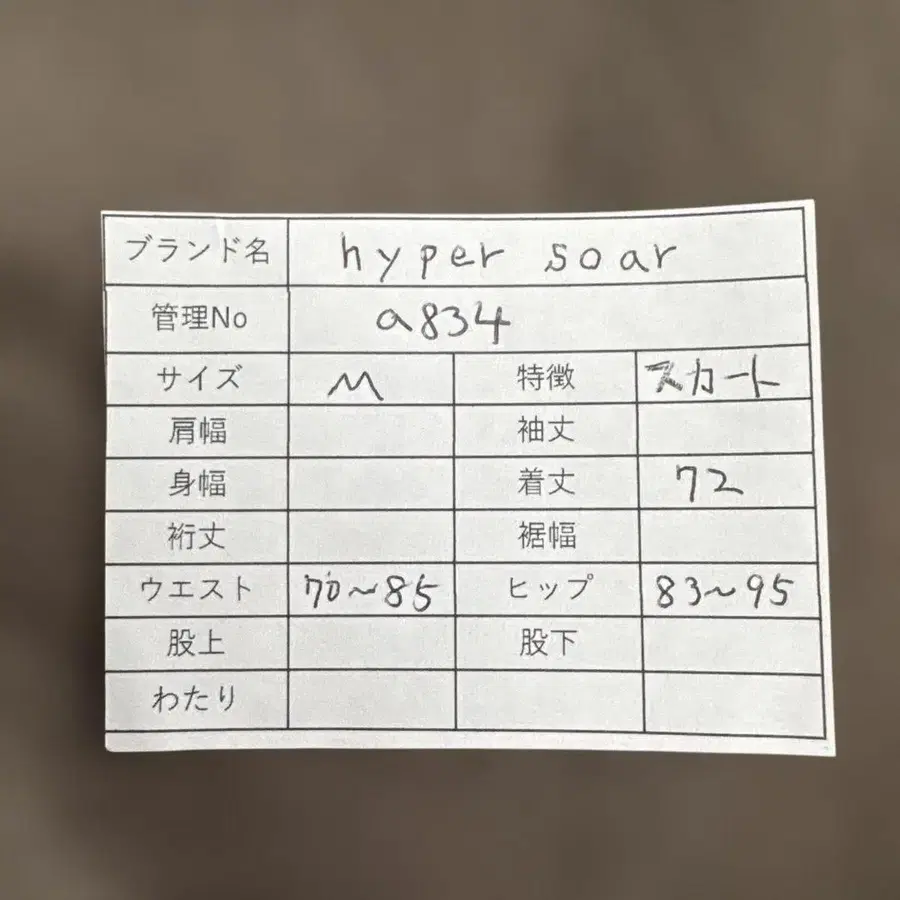 ブランド名 hyper soar
管理No a834
サイズ M 特徴 スカート
肩幅 袖丈
身幅 着丈 72
裄丈 裾幅
ウエスト 70~85 ヒップ 83~95
股上 股下
わたり